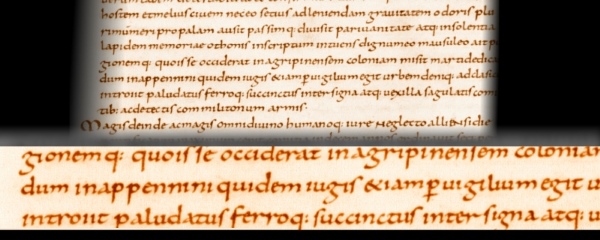 hostem etmeluscivem neceo secius adlevendam gravitatem odoris plu
rimumeri propalam ausit passimq; divisit parivanitate atq; insolentia
lapidem memoriae othonis inscriptum intuens dignumeo mausuleo ait
gionemq; quoisse occiderat inagripinensem coloniam misit martidedica
dum inappennini quidem iugis &iam pvigiliumegit urbemdemq; addclasi
introiit paludatus ferroq; succinctus inter signa atq; vexilla sagulatis com
tib; ac detectis commilitonum armis·
Magisdeinde acmagis omnidivino humanoq; iure neglecto alliensidie
gionemq; quoisse occiderat inagripinensem colonian
dum inappennini quidem iugis &iam pvigiliumegit u
introiit paludatus ferroq; succinctus inter signa atq; v